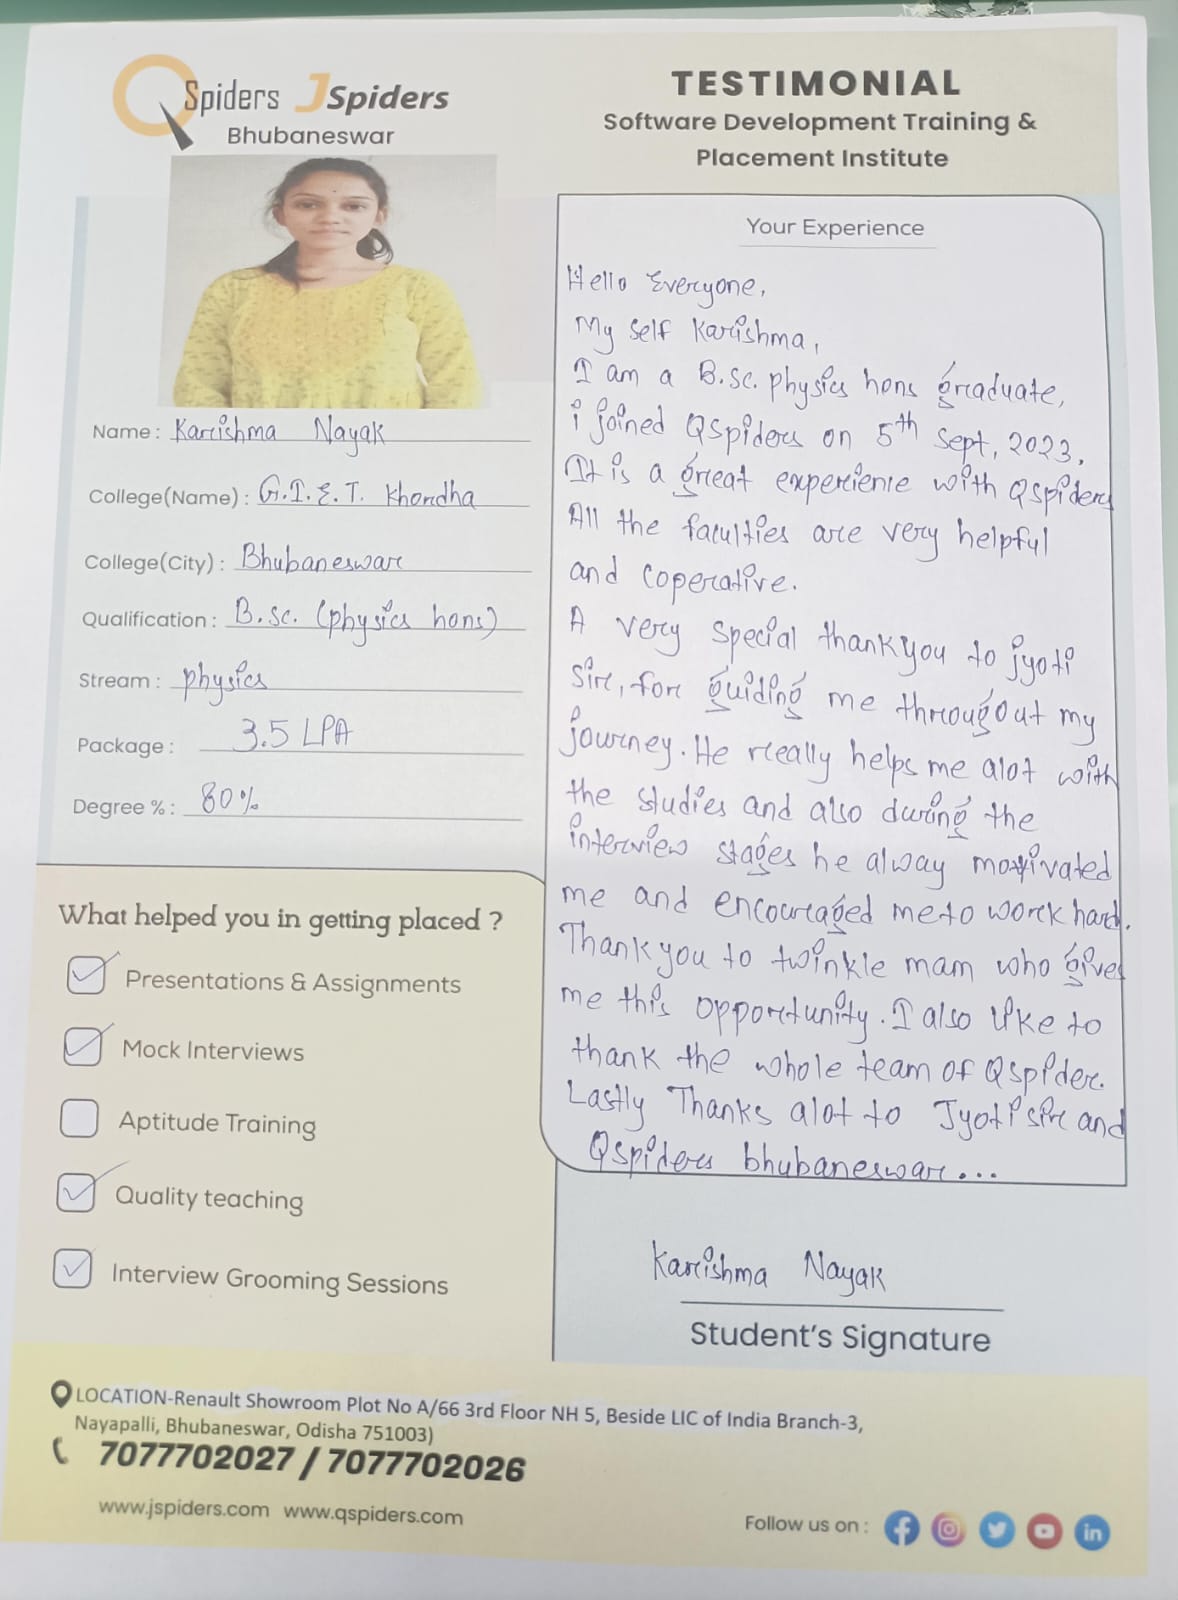 QSpiders JSpiders
Bhubaneswar
TESTIMONIAL
Software Development Training &
Placement Institute
Name : Karishma Nayak
College(Name) : G.I.E.T. Khordha
College(City) : Bhubaneswar
Qualification : B.sc. (physics hons)
Stream : physics
Package : 3.5 LPA
Degree % : 80%
What helped you in getting placed ?
Presentations & Assignments
Mock Interviews
Aptitude Training
Quality teaching
Interview Grooming Sessions
Your Experience
Hello Everyone,
My self Karishma,
I am a B.sc. physics hons graduate,
i joined QSpiders on 5th Sept, 2023.
It is a great experience with Qspiders
All the faculties are very helpful
and coperative.
A very special thankyou to jyoti
Sir, for guiding me througout my
journey. He really helps me alot with
the studies and also during the
interview stages he alway motivated
me and encouraged me to work hard.
Thank you to twinkle mam who gives
me this opportunity. I also like to
thank the whole team of Qspider.
Lastly Thanks alot to Jyoti sir and
Qspiders bhubaneswar...
Karishma Nayak
Student's Signature
LOCATION-Renault Showroom Plot No A/66 3rd Floor NH 5, Beside LIC of India Branch-3,
Nayapalli, Bhubaneswar, Odisha 751003)
7077702027 / 7077702026
www.jspiders.com www.qspiders.com
Follow us on :